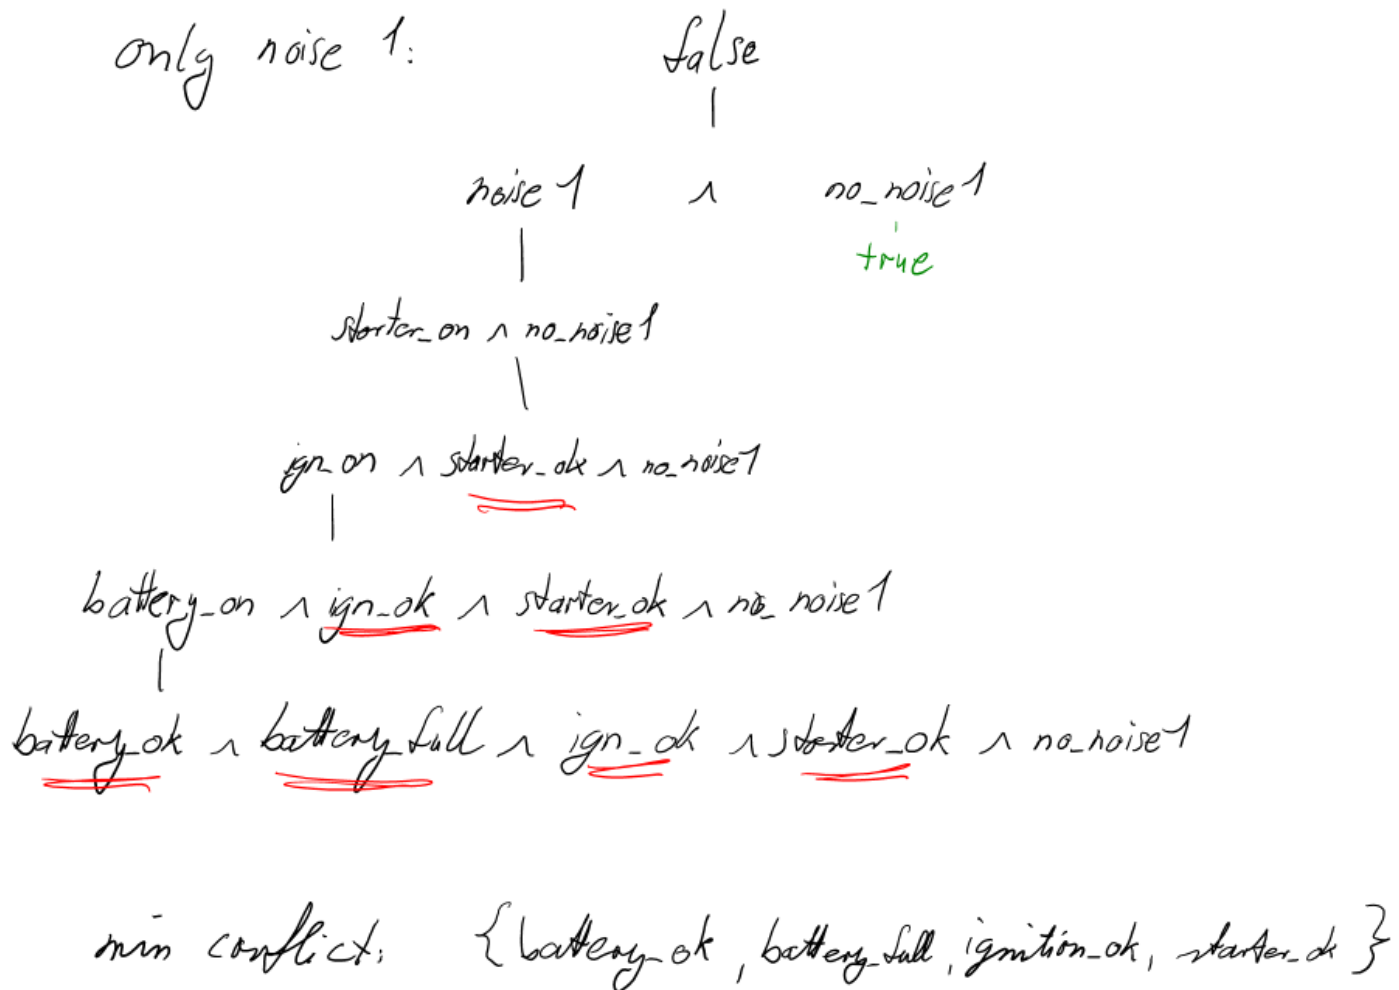 only noise 1: false
noise 1 ∧ no_noise 1
true
starter_on ∧ no_noise 1
ign_on ∧ starter_ok ∧ no_noise 1
battery_on ∧ ign_ok ∧ starter_ok ∧ no_noise 1
battery_ok ∧ battery_full ∧ ign_ok ∧ starter_ok ∧ no_noise 1
min conflict: {battery_ok, battery_full, ignition_ok, starter_ok}